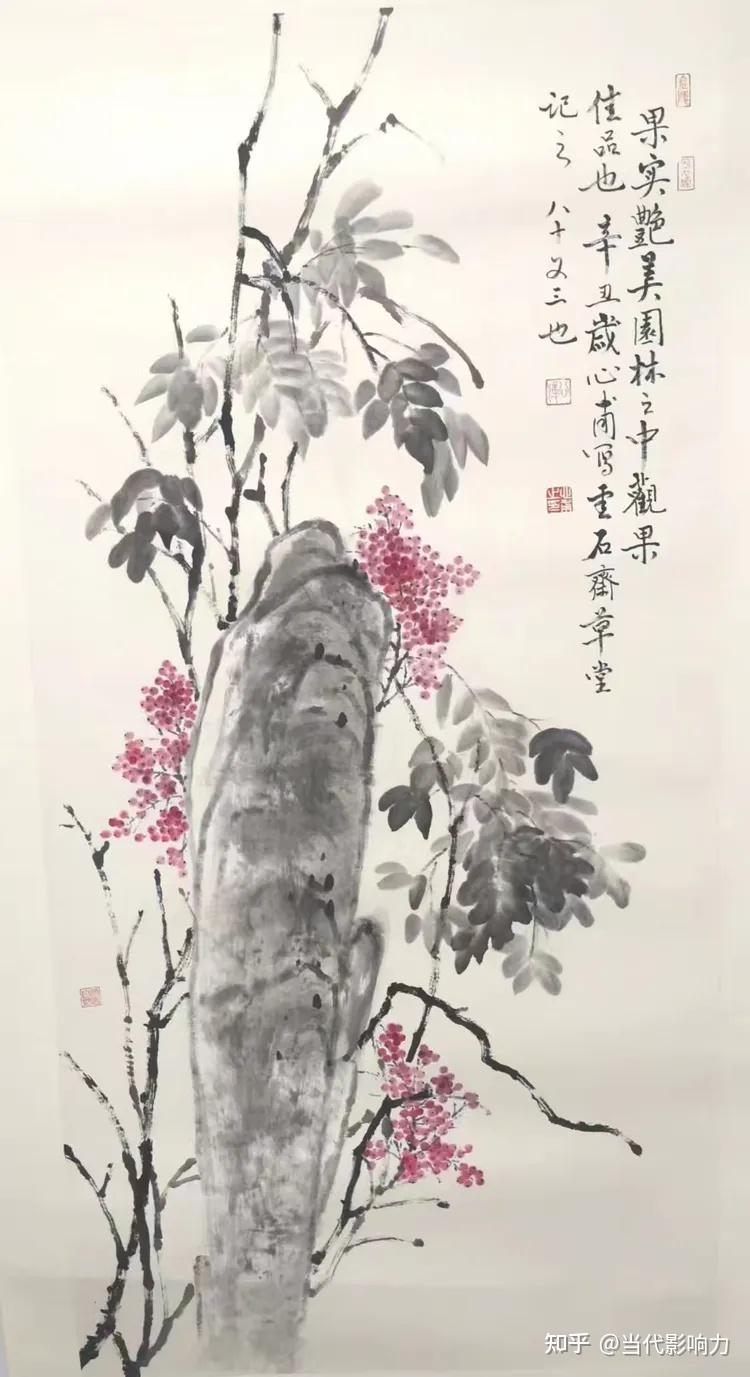 果实艷美園林之中觀果
佳品也 辛丑歲心甫写雲石齋草堂
记之 八十又三也
知乎 @当代影响力